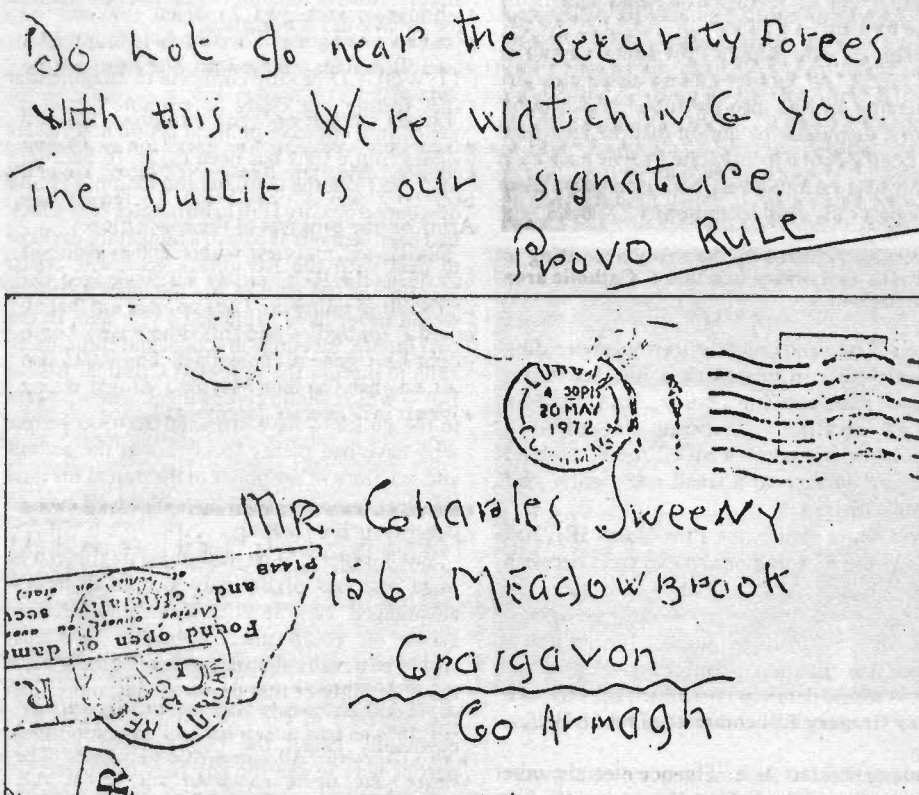 Do not go near the security forces
with this We're WatchinG You.
The bullit is our signature.
Provo RuLe
LURGAN
4 30PM
20 MAY
1972
MR. Charles SweeNY
156 MeadowBrook
Craigavon
Co Armagh
P1448
Found open or
and officially
R.
R